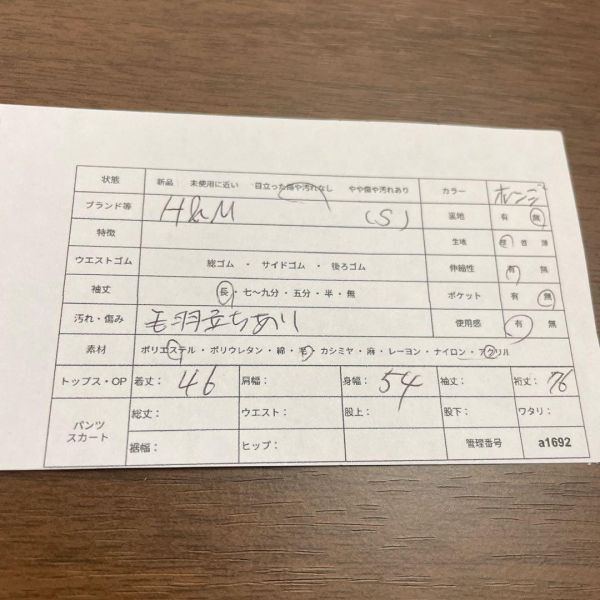 状態 新品 未使用に近い 目立った傷や汚れなし やや傷や汚れあり カラー オレンジ
ブランド等 H&M (S) 裏地 有 無
特徴 生地 厚 普 薄
ウエストゴム 総ゴム ・ サイドゴム ・ 後ろゴム 伸縮性 有 無
袖丈 長・七〜九分・五分・半・無 ポケット 有 無
汚れ・傷み 毛羽立ちあり 使用感 有 無
素材 ポリエステル・ポリウレタン・綿・毛・カシミヤ・麻・レーヨン・ナイロン・アクリル
トップス・OP 着丈: 46 肩幅: 身幅: 54 袖丈: 裄丈: 76
パンツ スカート 総丈: ウエスト: 股上: 股下: ワタリ:
裾幅: ヒップ: 管理番号 a1692